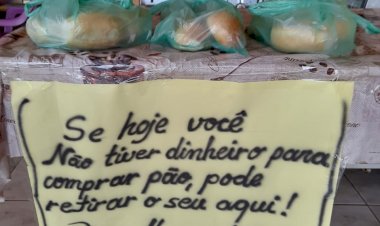 Se hoje você
Não tiver dinheiro para
comprar pão, pode
retirar o seu aqui!